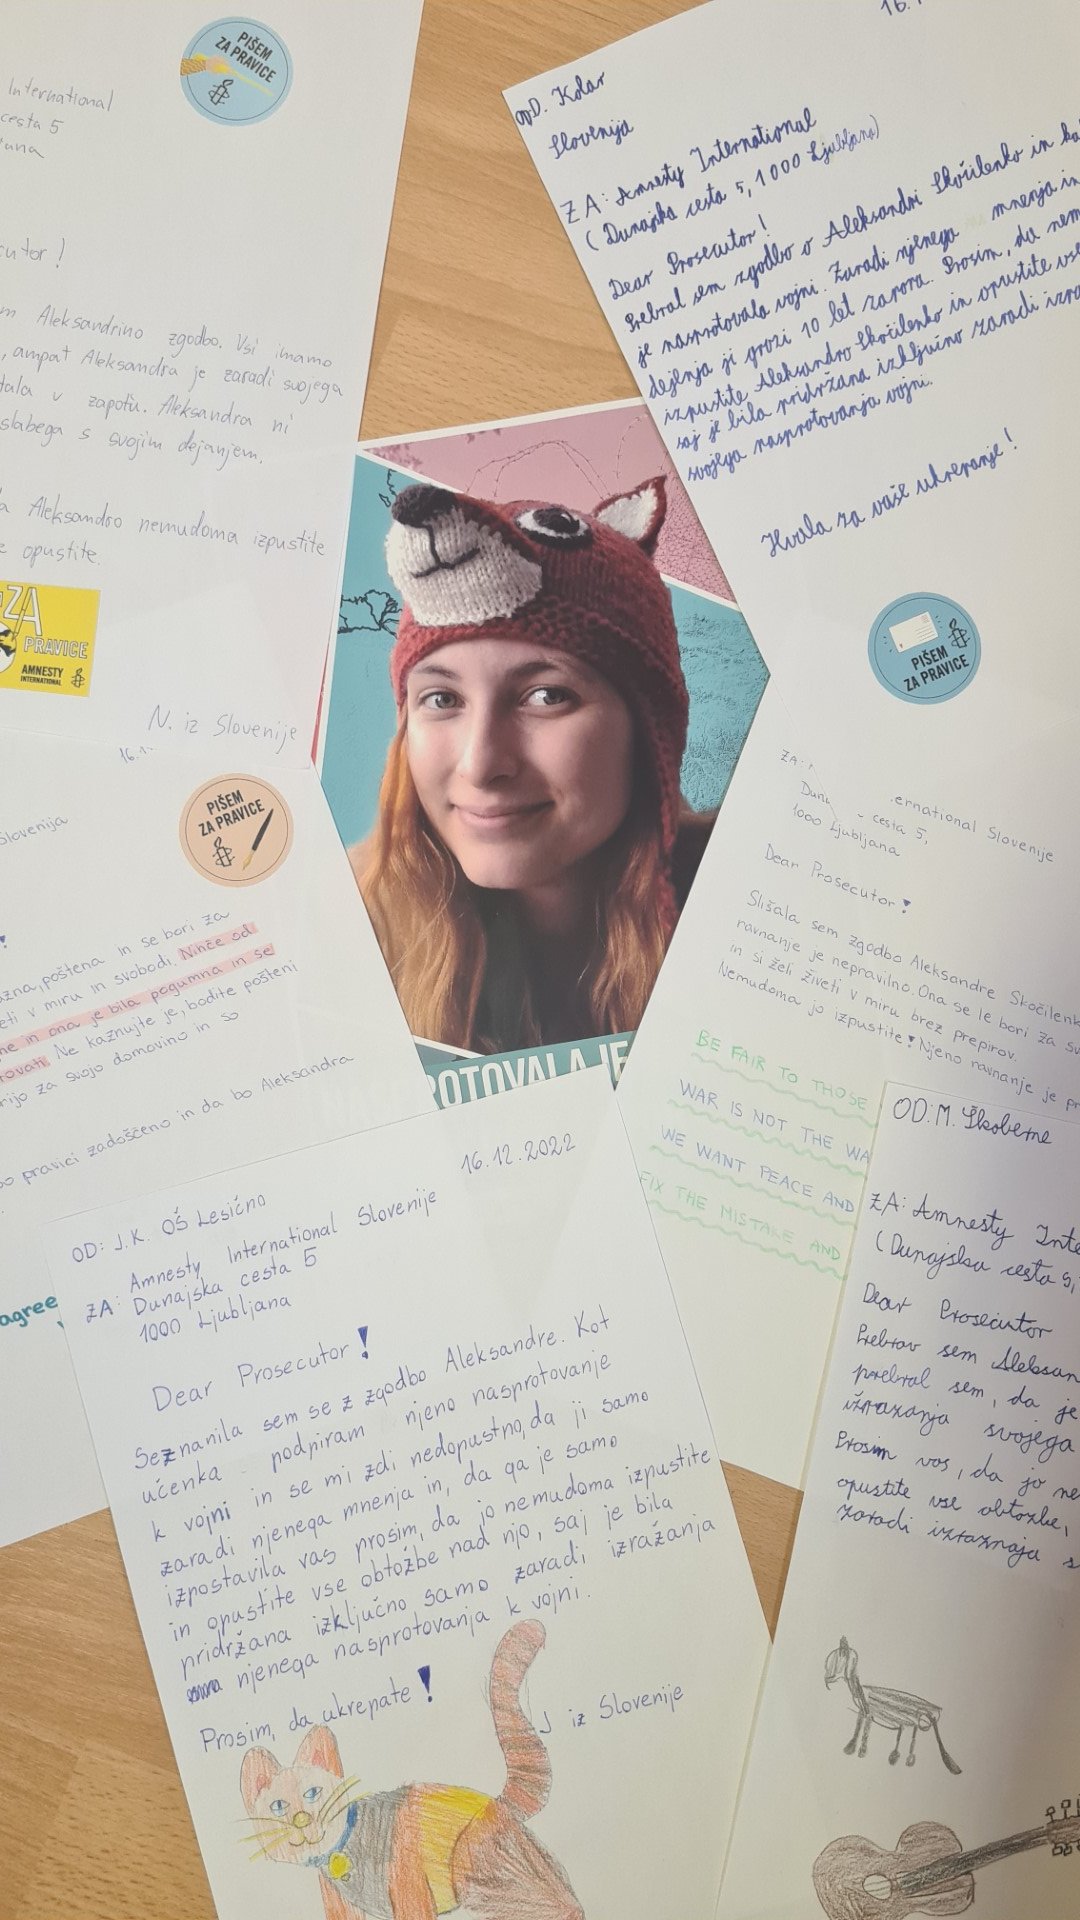 International
cesta 5
PIŠEM
ZA PRAVICE
Aleksandrino zgodbo. Vsi imamo
, ampat Aleksandra je zaradi svojega
v zaporu. Aleksandra ni
slabega s svojim dejanjem.
Aleksandro nemudoma izpustite
opustite.
ZA
PRAVICE
AMNESTY
INTERNATIONAL
N. iz Slovenije
OD. Kolar
Slovenija
ZA: Amnesty International
(Dunajska cesta 5, 1000 Ljubljana)
Dear Prosecutor!
Prebral sem zgodbo o Aleksandri Skočilenko in
je nasprotovala vojni. Zaradi njenega mnenja in
dejenja ji grozi 10 let zapora. Prosim, da
izpustite Aleksandro Skočilenko in opustite vse
saj je bila pridržana izključno zaradi
svojega nasprotovanja vojni.
Hvala za vaše ukrepanje!
PIŠEM
ZA PRAVICE
16.1
Slovenija
PIŠEM
ZA PRAVICE
poštena in se bori za
v miru in svobodi. Nihče od
in ona je bila pogumna in se
Ne kaznujte je, bodite pošteni
za svojo domovino in so
pravici zadoščeno in da bo Aleksandra
agree
ROTOVALA JE
ZA:
ernational Slovenije
cesta 5,
1000 Ljubljana
Dear Prosecutor!
Slišala sem zgodbo Aleksandre Skočilenk
ravnanje je nepravilno. Ona se le bori za
in si želi živeti v miru brez prepirov.
Nemudoma jo izpustite! Njeno ravnanje je
BE FAIR TO THOSE
WAR IS NOT THE WA
WE WANT PEACE AND
FIX THE MISTAKE AND
16.12.2022
OD: J.K. OŠ Lesično
Amnesty International Slovenije
ZA: Dunajska cesta 5
1000 Ljubljana
Dear Prosecutor!
Seznanila sem se z zgodbo Aleksandre. Kot
učenka podpiram njeno nasprotovanje
k vojni in se mi zdi nedopustno, da ji samo
zaradi njenega mnenja in, da ga je samo
izpostavila vas prosim, da jo nemudoma izpustite
in opustite vse obtožbe nad njo, saj je bila
pridržana izključno samo zaradi izražanja
njenega nasprotovanja k vojni.
Prosim, da ukrepate!
J iz Slovenije
OD: M. Škoberne
ZA: Amnesty Inte
(Dunajska cesta 5,
Dear Prosecutor
Prebrav sem Aleksan
prebral sem, da je
izražanja svojega
Prosim vas, da jo ne
opustite vse obtožbe,
zaradi izraznaja s